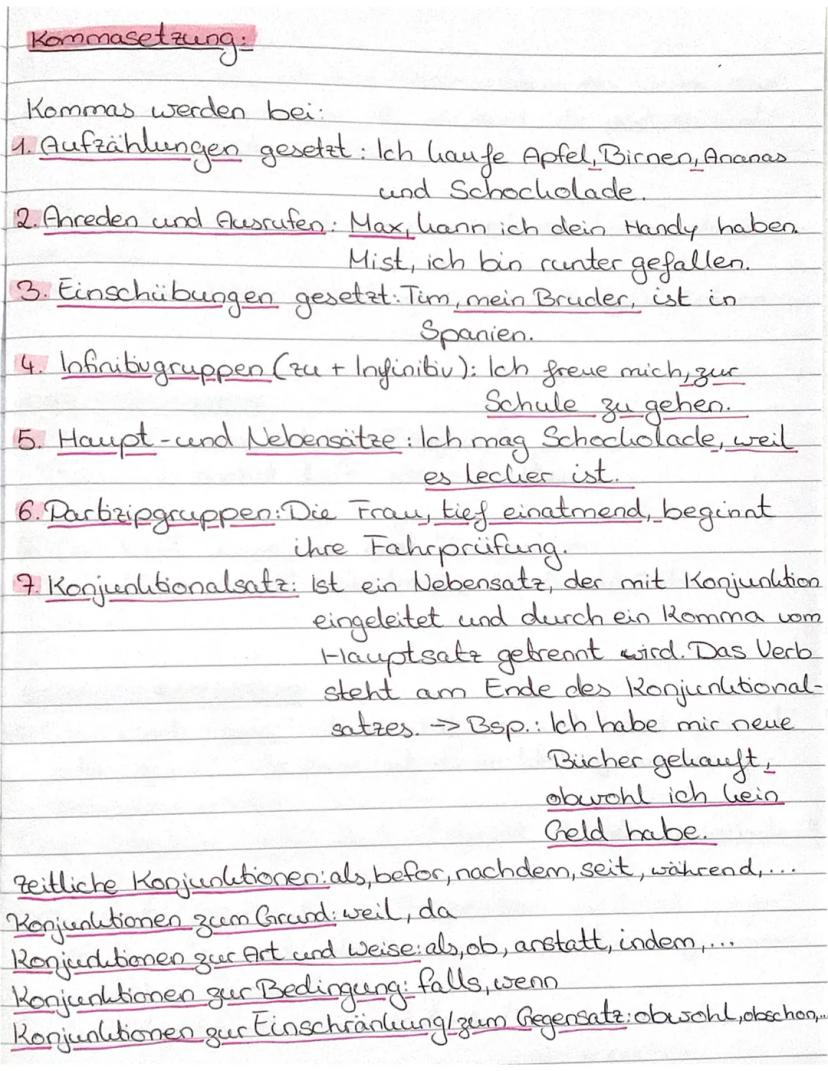 Kommasetzung:
Kommas werden bei:
1. Aufzählungen gesetzt: Ich kaufe Apfel, Birnen, Ananas
und Schockolade.
2. Anreden und Ausrufen: Max, kann ich dein Handy haben.
Mist, ich bin runter gefallen.
3. Einschübungen gesetzt: Tim, mein Bruder, ist in
Spanien.
4. Infinitivgruppen (zu + Infinitiv): Ich freue mich, zur
Schule zu gehen.
5. Haupt- und Nebensätze: Ich mag Schockolade, weil
es lecker ist.
6. Partizipgruppen: Die Frau, tief einatmend, beginnt
ihre Fahrprüfung.
7. Konjunktionalsatz: Ist ein Nebensatz, der mit Konjunktion
eingeleitet und durch ein Komma vom
Hauptsatz getrennt wird. Das Verb
steht am Ende des Konjunktional-
satzes. → Bsp.: Ich habe mir neue
Bücher gekauft,
obwohl ich kein
Geld habe.
zeitliche Konjunktionen: als, befor, nachdem, seit, während,...
Konjunktionen zum Grund: weil, da
Konjunktionen zur Art und Weise: als, ob, anstatt, indem,...
Konjunktionen zur Bedingung: falls, wenn
Konjunktionen zur Einschränkung/zum Gegensatz: obwohl, obschon,...